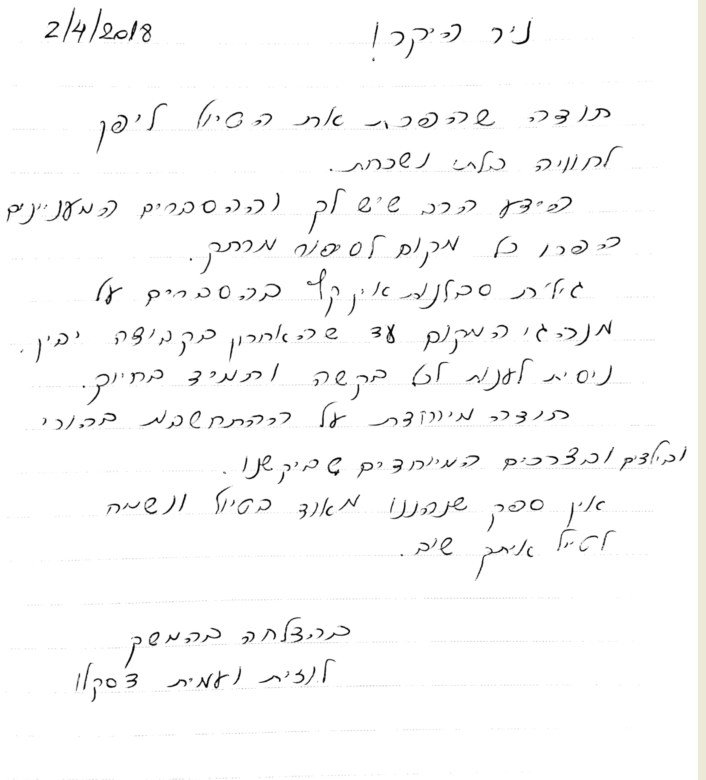 2/4/2018
ניר היקר!
תודה שהפכת את הטיול ליפן
לחוויה בלתי נשכחת.
הידע הרב שיש לך וההסברים המעניינים
הפכו כל מקום לסיפור מרתק.
גילית סבלנות אין קץ בהסברים על
מנהגי המקום עד שהאחרון בקבוצה יבין.
ניסית לענות לכל בקשה ותמיד בחיוך.
תודה מיוחדת על ההתחשבות בהורי
ובילדים ובצרכים המיוחדים שביקשנו.
אין ספק שנהננו מאוד בטיול ונשמח
לטייל איתך שוב.
בהצלחה בהמשך
ועמית דסקלו